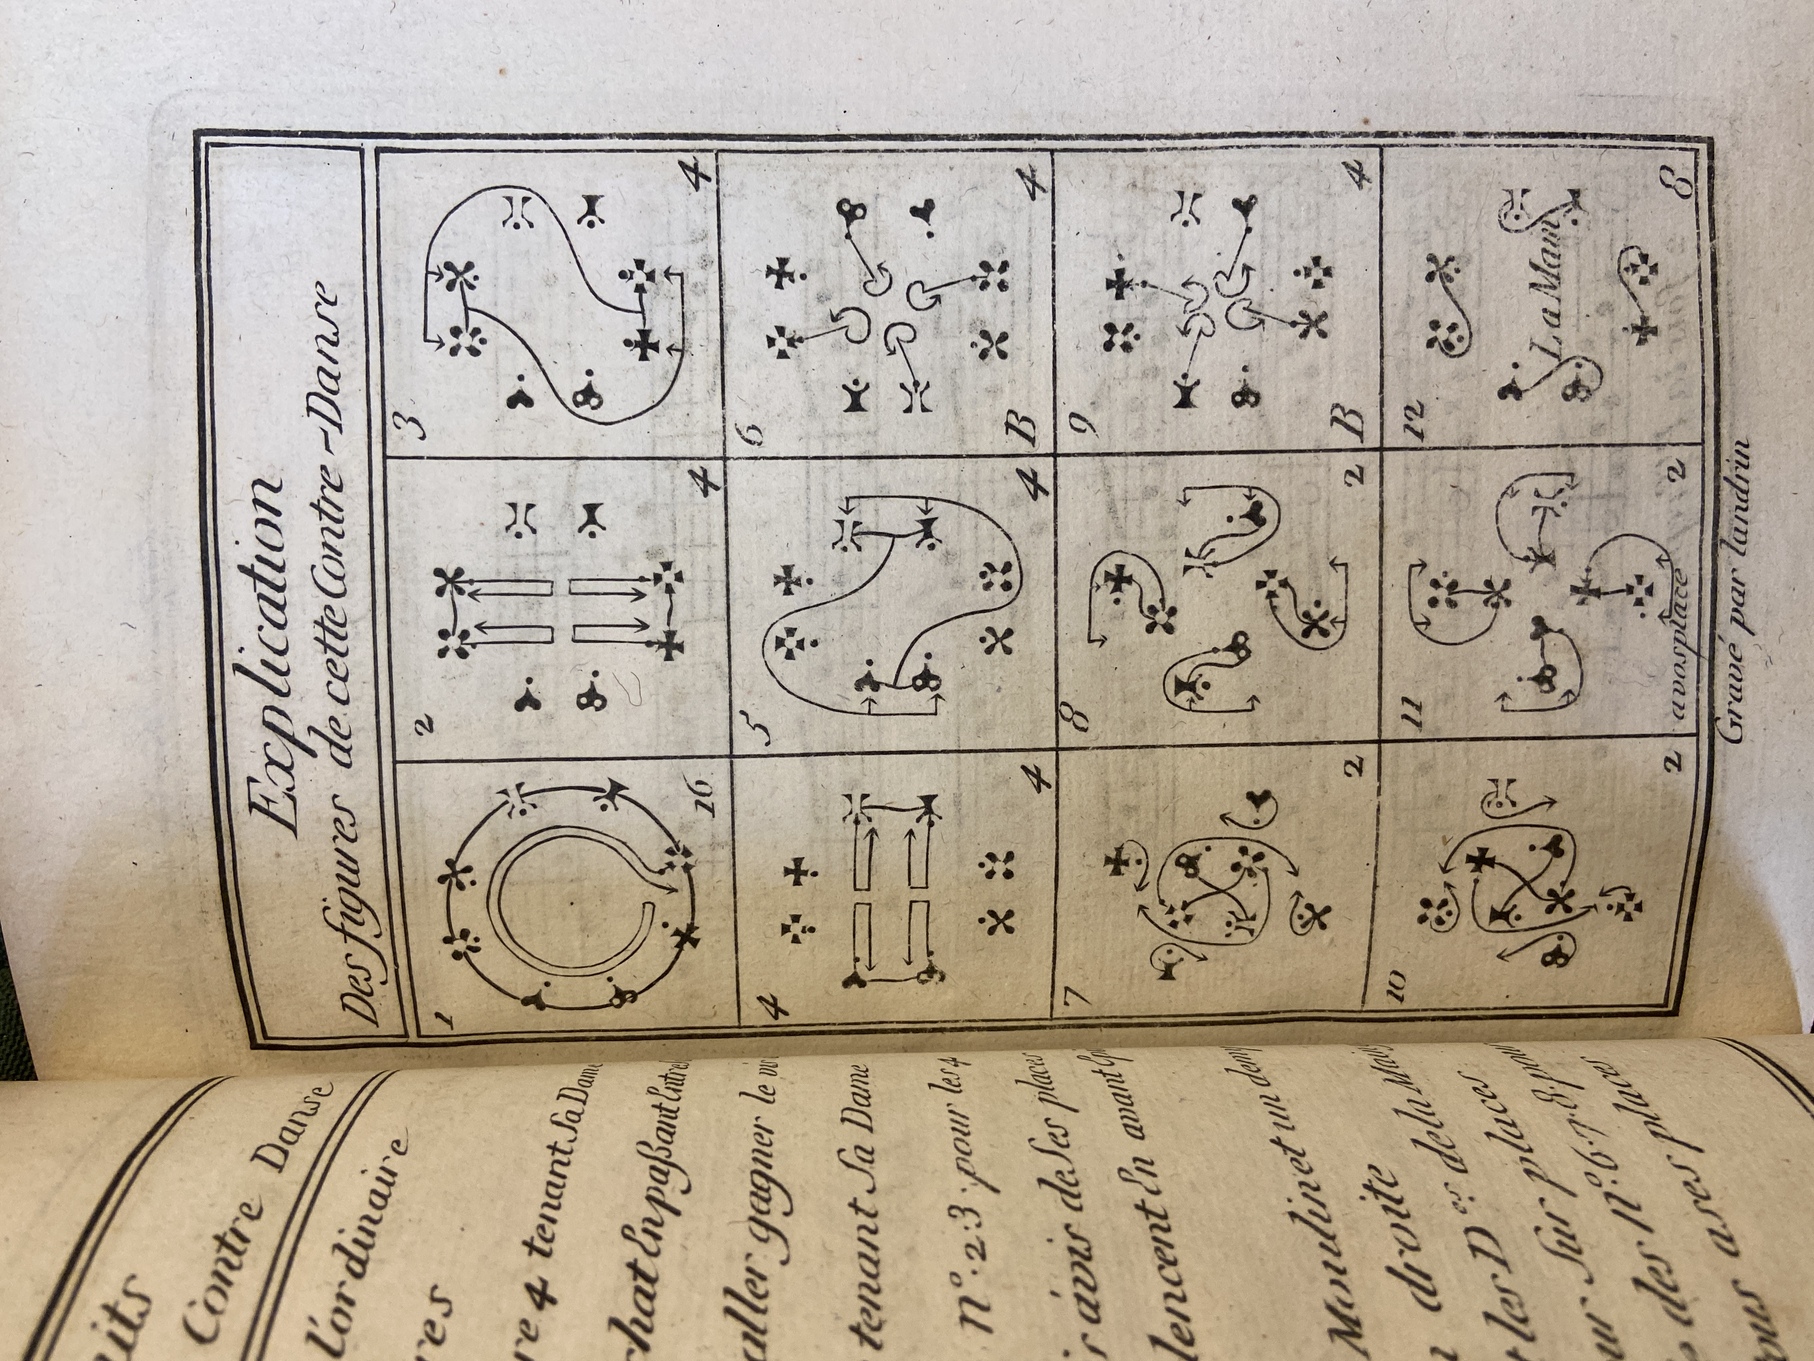 Explication
Des figures de cette Contre-Danse
1
16
2
4
3
4
4
4
5
4
6
B
4
7
2
8
2
9
B
4
10
2
11
avos place
2
12
La Main
8
Gravé par landrin
Contre Danse
l'ordinaire
4 tenant Sa Dame
chat En paßant Entre
aller gagner le
tenant Sa Dame
n.º 2.3. pour les 4
vis de Ses places
En avant
Moulinet et un
droite de la Main
les D.es des
Sur places
des n.º 6.7.8. pour
a ses places